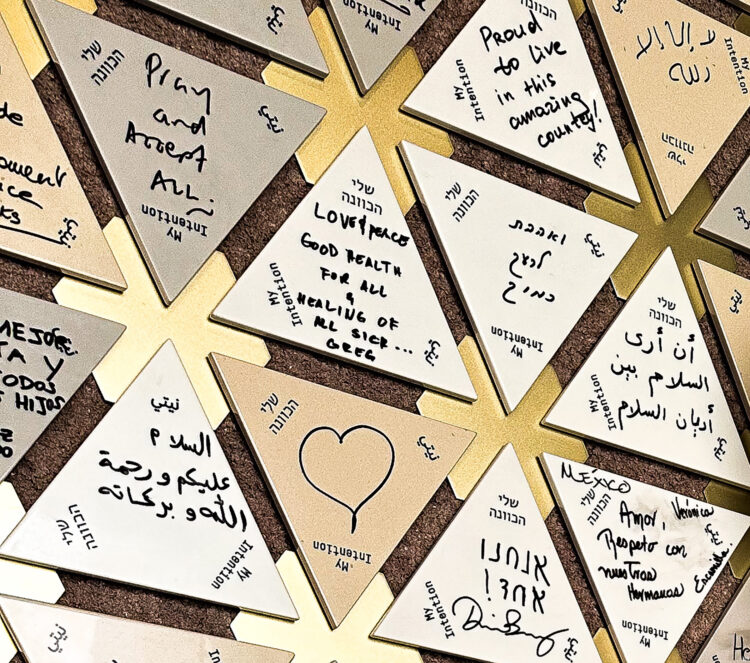 نيتي
My
Intention
שלי
הכוונה
Pray
and
Accept
ALL
نيتي
My
Intention
שלי
הכוונה
Proud
to live
in this
amazing
country!
My
Intention
نيتي
لا إله إلا
الله
My
Intention
שלי
הכוונה
نيتي
שלי
הכוונה
LOVE & PEACE
GOOD HEALTH
FOR ALL
&
HEALING OF
ALL SICK...
GREG
My
Intention
نيتي
שלי
הכוונה
ואהבת
לרעך
כמוך
نيتي
My
Intention
שלי
הכוונה
أن أرى
السلام بين
أديان السلام
My
Intention
نيتي
MEJOR
TA Y
TODOS
HIJOS
نيتي
السلام
عليكم ورحمة
الله وبركاته
שלי
הכוונה
My
Intention
שלי
הכוונה
نيتي
My
Intention
שלי
הכוונה
אנחנו
אחד!
My
Intention
نيتي
MEXICO
שלי
הכוונה
Amor, Verónica
Respeto con
nuestras
Hermanas
نيتي
My
Intention
نيتي
نيتي